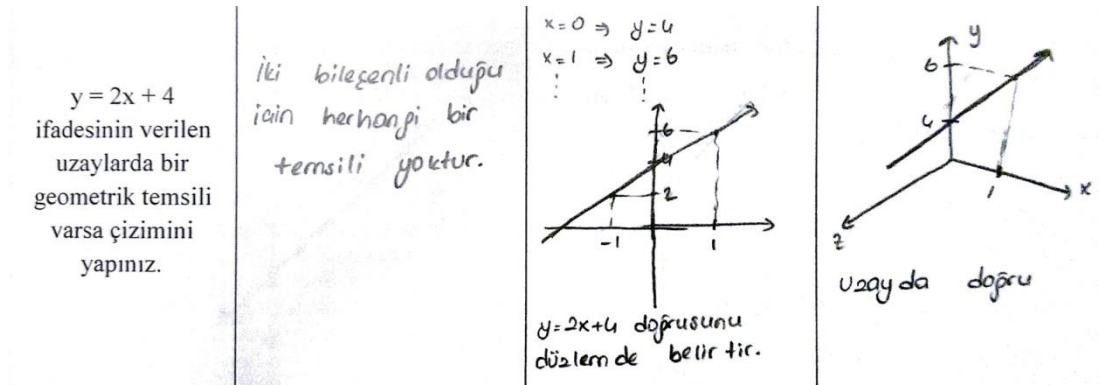 y = 2x + 4
ifadesinin verilen
uzaylarda bir
geometrik temsili
varsa çizimini
yapınız.
İki bileşenli olduğu
için herhangi bir
temsili yoktur.
x=0 ⇒ y=4
x=1 ⇒ y=6
⋮ ⋮
6
4
2
-1 1
y=2x+4 doğrusunu
düzlemde belirtir.
y
6
4
1
x
z
uzayda doğru